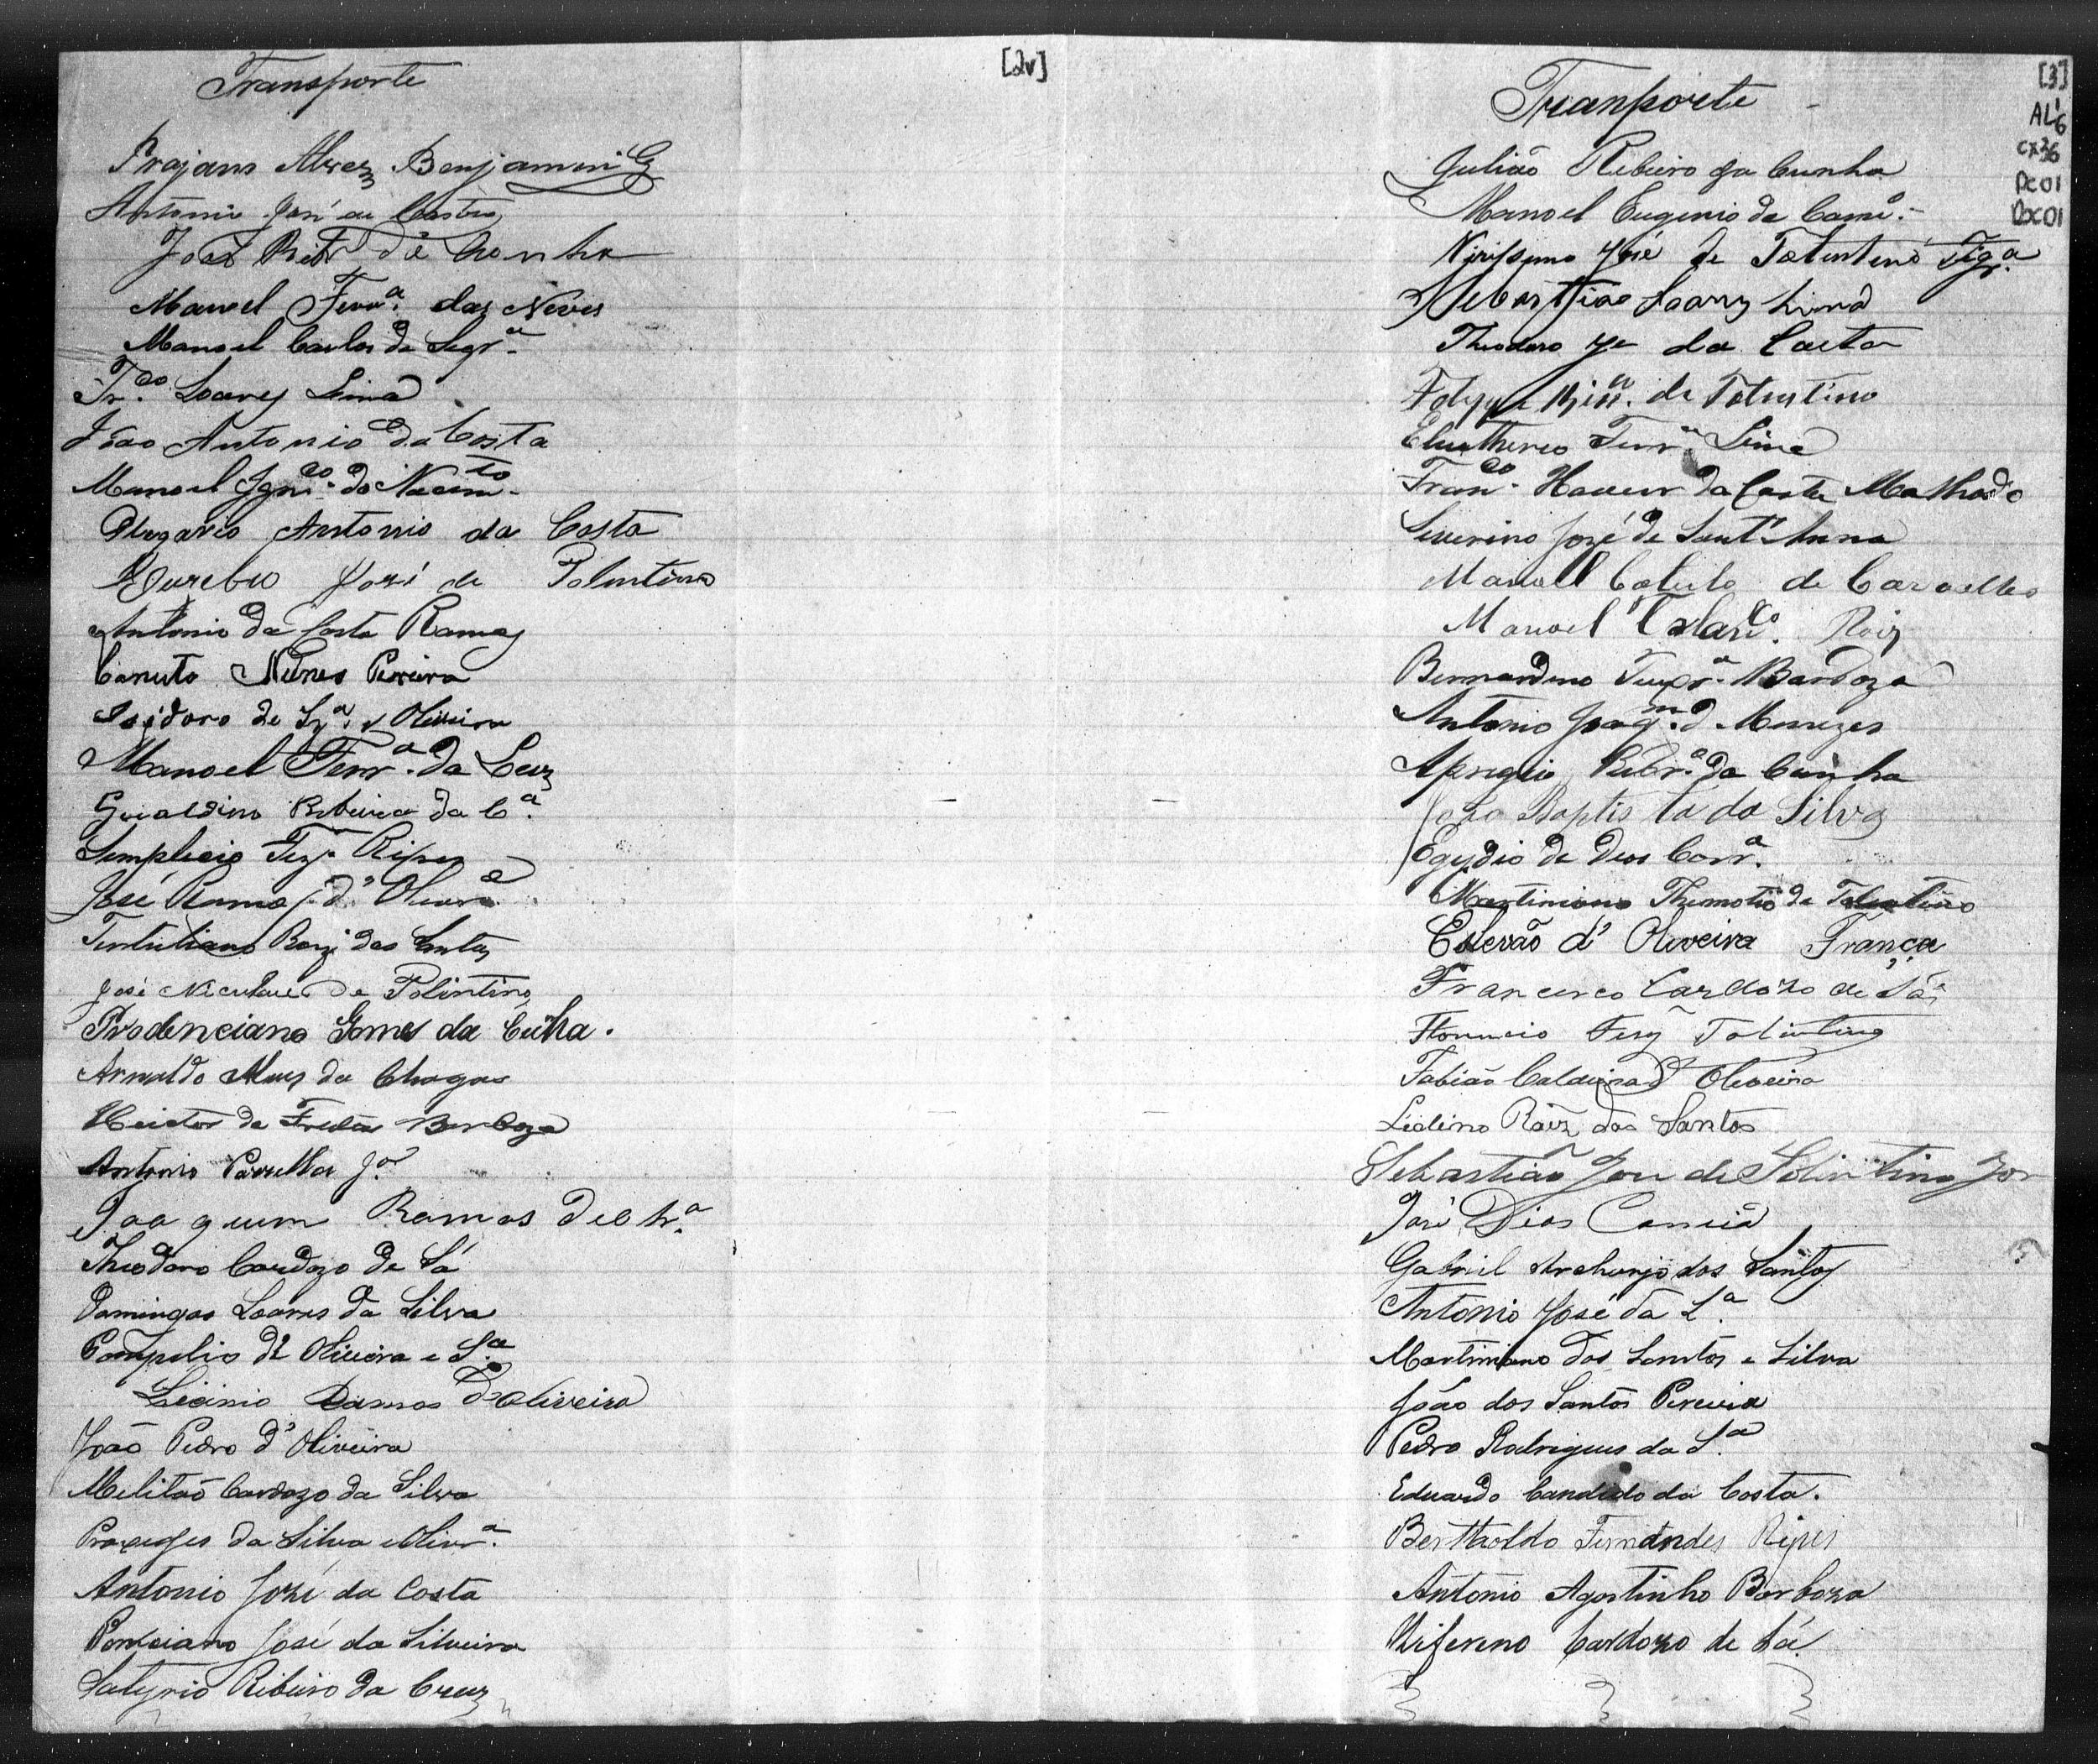 [2v]
Transporte
Trajano Alvez Benjamin
Antonio José de Castro
João Ribr da Cunha
Manoel Ferrª. das Neves
Manoel Carlos de Segrª
Soares Lima
João Antonio da Costa
Manoel Ignᶜᵒ. do Nacimᵗᵒ.
Olegario Antonio da Costa
Euzebio José de Tolentino
Antonio da Costa Ramos
Canuto Nunes Pereira
Isidoro de Sz.ª e Oliveira
Manoel Ferrª. da Cruz
Geraldino Ribeiro da Cª.
Simplicio Ripes
José Ramos d' Olivrª
Tertuliano dos Santos
José Niculau de Tolintino
Prodenciano Gomes da Cuñha.
Arnaldo Alves da Chagas
Heistor de Freitas Barboza
Antonio Parrella Jor
Joaquim Ramos de Olvrª
Theodoro Cardozo de Sá
Domingos Soares da Silva
Pompilio de Oliveira e Sª
Licinio Ramos De Oliveira
João Pedro d' Oliveira
Melitão Cardozo da Silva
Praxedes da Silva e Olivrª.
Antonio José da Costa
Ponciano José da Silveira
Satyrio Ribeiro da Cruz
[3]
AL1
6
cx36
Dc01
Dx01
Tranporte
Julião Ribeiro da Cunha
Manoel Eugenio da
Virissimo José de Tolentino
Sebastião Soares Lima
Theodoro Je da Costa
de Tolentino
Eleutherio Ferrª Lima
Franᶜᵒ. Xavier da Costa Malhado
Severino José de Sant'Anna
Manoel Catulo de Carvalho
Manoel Roiz
Bernardino Barboza
Antonio Joaqᵐ. d Menezes
Aprigio Ribrº. da Cunha
João Baptista da Silva
Egydio de Deos Corrª.
Martiniano Themotio de Tolentino
Estevão d' Oliveira França
Francisco Cardozo de Sá
Florencio Tolintino
Fabião Caldeira d' Oliveira
Lidino Roiz dos Santos
Sebastião José de Tolintino Jor
José Dias Correia
Gabriel Archanjo dos Santos
Antonio José da Sª.
Martiniano dos Santos e Silva
João dos Santos Pereira
Pedro Rodrigues da Sª
Eduardo Candido da Costa.
Bertholdo Fernandes Ripes
Antonio Agostinho Barboza
Ziferino Cardozo de Sá.